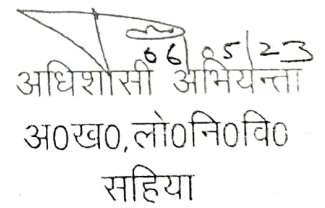 06/05/23
अधिशासी अभियन्ता
अ0ख0,लो0नि0वि0
सहिया